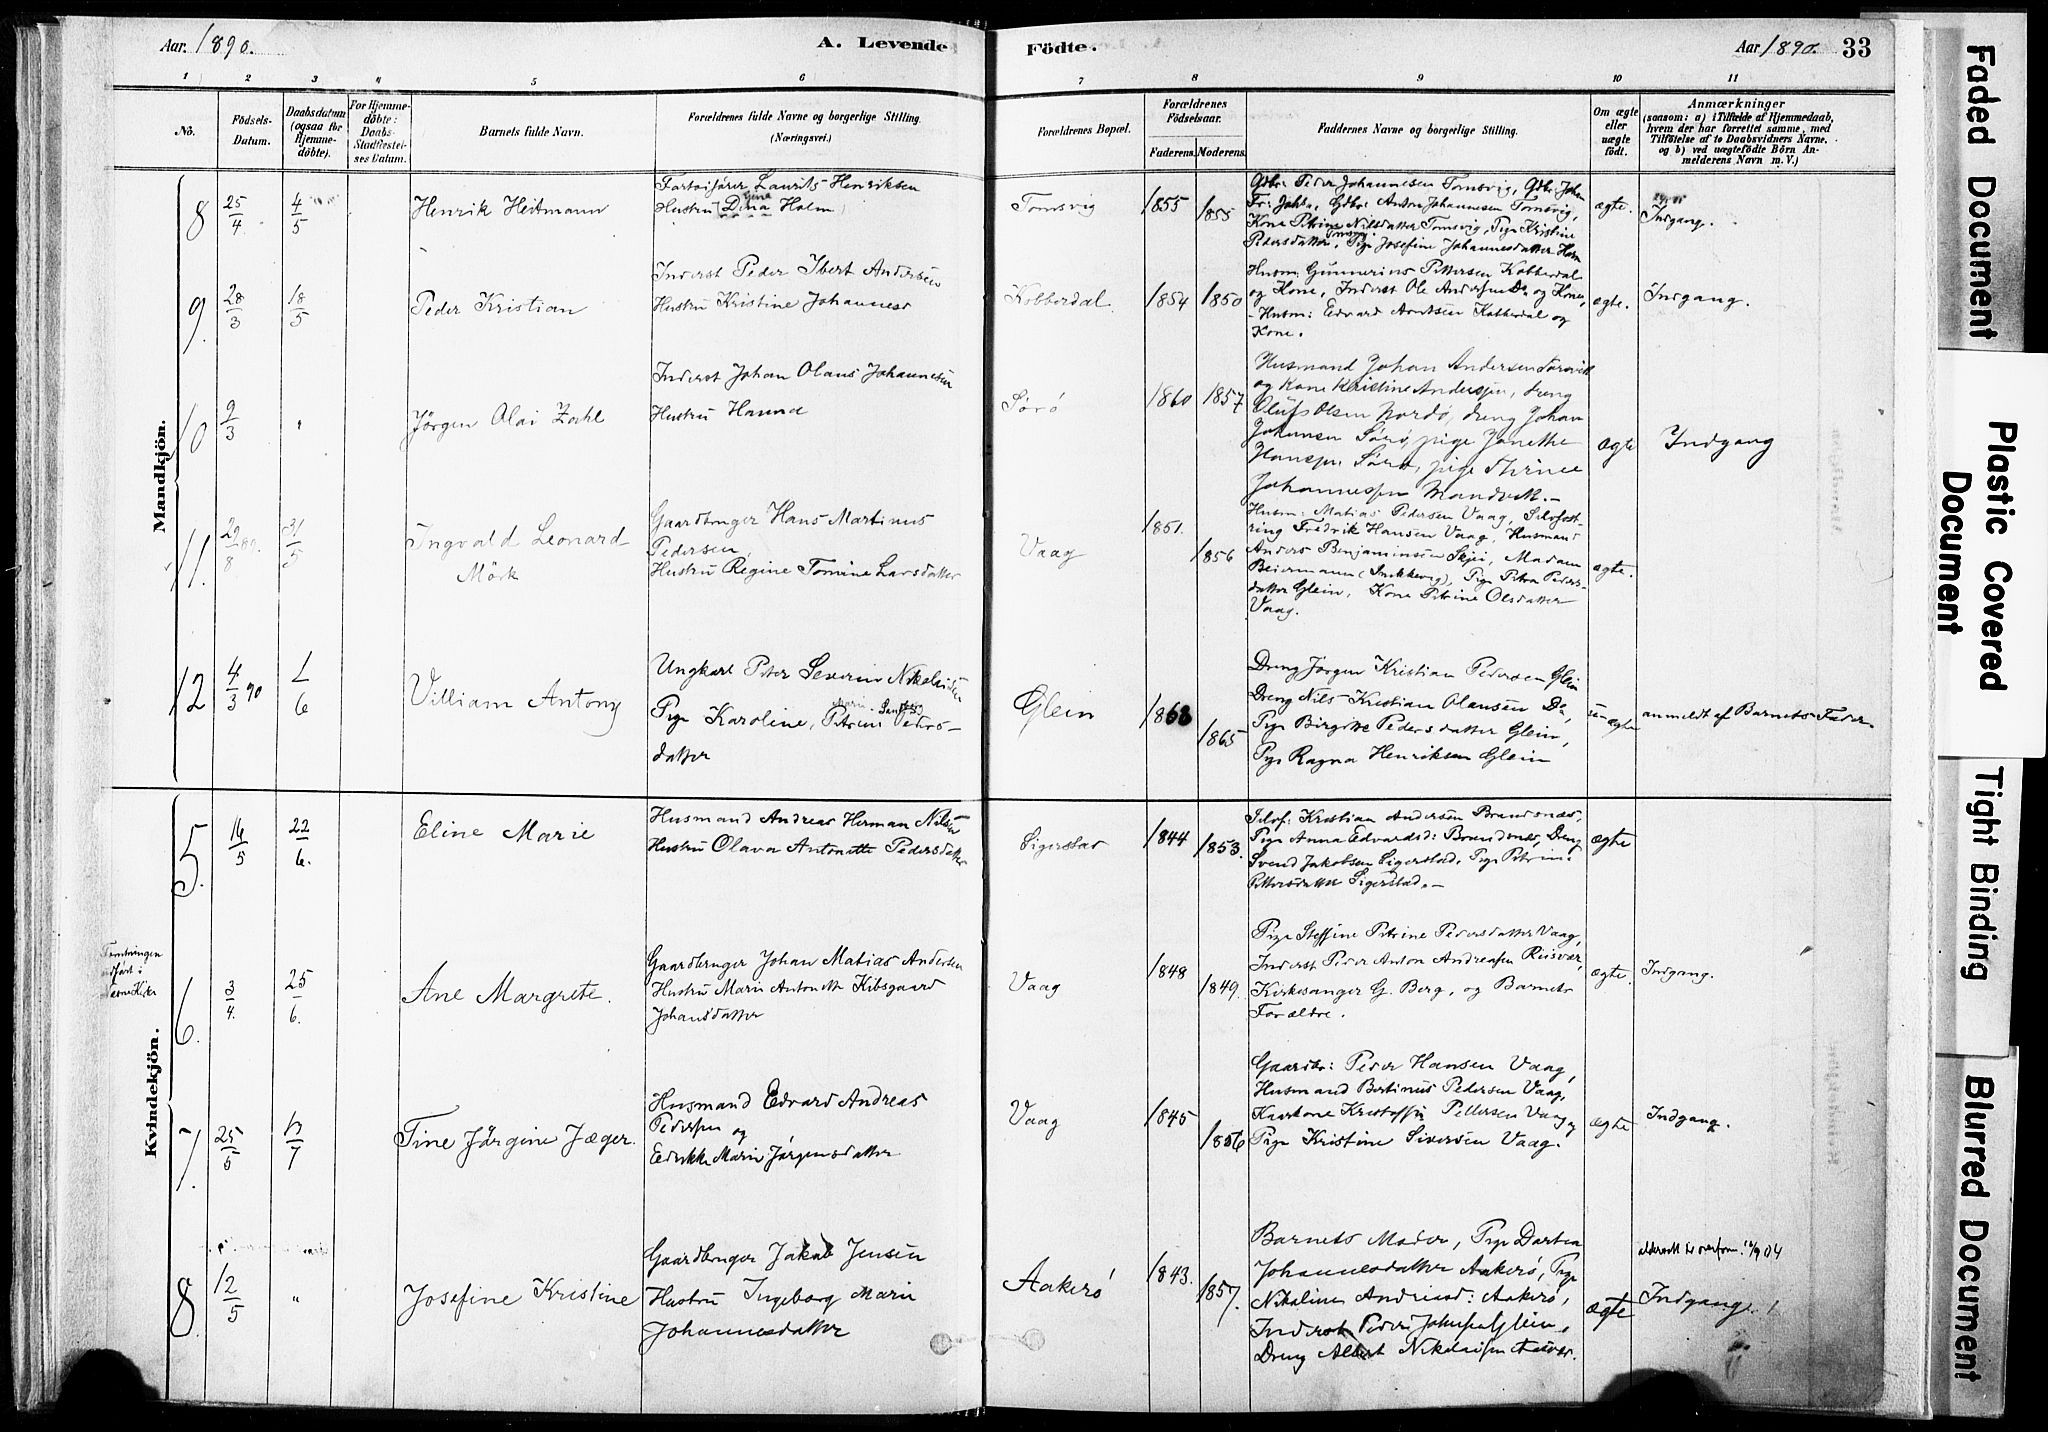 Aar. 1890. A. Levende Födte. Aar 1890. 33
1 2 3 4 5 6 7 8 9 10 11
No. Födsels-Datum. Daabsdatum (ogsaa for Hjemme-döbte). For Hjemme-döbte: Daabs-Stadfæstel-ses Datum. Barnets fulde Navn. Forældrenes fulde Navne og borgerlige Stilling. (Næringsvei.) Forældrenes Bopæl. Forældrenes Födselsaar. Faderens. Moderens. Faddernes Navne og borgerlige Stilling. Om ægte eller uægte födt. Anmærkninger (saasom: a) i Tilfælde af Hjemmedaab, hvem der har forrettet samme, med Tilföielse af to Daabsvidners Navne, og b) ved uægtefödte Börn An-melderens Navn m. V.)
Mandkjön.
8 25/4 4/5 Henrik Heitmann
Laurits Henriksen
Hustru Dina Holm
Tomsvig 1855 1855
Gdbr: Peder Johannesen Tomsvig, Gdbr: Johan
Gdbr: Anton Johannesen Tomsvig,
Kone Petrine Nilsdatter Tomsvig, Pige Kristine
Pedersdatter Tomsvig, Pige Josefine Johannesdatter
ægte. Indgang.
9. 28/3 18/5 Peder Kristian
Inderst Peder Ibert Andersen
Hustru Kristine Johannesd
Kobberdal 1854 1850
Husm: Gunnerius Pettersen Kobberdal
og Kone, Inderst Ole Andersen Do og Kone,
- Husm: Edvard Arntsen Kobberdal og
Kone.
ægte. Indgang.
10 9/3 " Jörgen Olai Zahl
Inderst Johan Olaus Johannesen
Hustru Hanna
Sørø 1860 1857
Husmand Johan Andersen
og Kone Kristine Anderssen, dreng
Olüfs Olsen Nordø, dreng Johan
Johansen Sørø, pige Janethe
Hanssen Sørø, pige
Johannessen
ægte Indgang
11. 29/8 89. 31/5 Ingvald Leonard
Mörk
Gaardbruger Hans Martinus
Pedersen,
Hustru Regine Tomine Larsdatter
Vaag 1851. 1856
Husm: Matias Pedersen Vaag, Selvfost-
ring Fredrik Hansen Vaag, Husmand
Anders Benjaminsen Skjei, Madam
Beiermann (Snikkevig), Pige Petra Peders-
datter Glein, Kone Petrine Olsdatter
Vaag.
ægte.
12 4/3 90 1/6 Villiam Antony
Ungkarl Peter Severin Nikolaisen
Pige Karoline, Petrine Peders-
datter
Glein 1868 1865
Dreng Jørgen Kristian Pedersen Glein
Dreng Nils Kristian Olausen Do,
Pige Birgitte Pedersdatter Glein,
Pige Ragna Henriksen Glein
u-ægte anmeldt af Barnets Fader.
Kvindekjön.
5. 16/5 22/6. Eline Marie
Husmand Andreas Herman Nilsen
Hustru Olava Antonette Pedersdatter
Sigerstad 1844 1853.
Selvf: Kristian Andersen Brandsnes,
Pige Anna Edvardsd: Brandsnes, Dreng
Svend Jakobsen Sigerstad, Pige Petrine
Pettersdatter Sigerstad. -
ægte
6. 3/4. 25/6. Ane Margrete.
Gaardbruger Johan Matias Andersen
Hustru Marie Antonette Kibsgaard
Johansdatter
Vaag 1848 1849.
Pige Steffine Petrine Pedersdatter Vaag,
Inderst Peder Anton Andreassen Riisvær,
Kirkesanger G. Berg, og Barnets
Forældre.
ægte. Indgang.
7. 25/5 13/7 Tine Jørgine Jæger.
Husmand Edvard Andreas
Pederssen og
Edvikke Marie Jørgensdatter
Vaag 1845 1856
Gaardbr: Peder Hansen Vaag,
Husmand Bertinus Pedersen Vaag,
Kaarkone Kristoffa Pettersen Vaag og
Pige Kristine Sivertsen Vaag.
ægte Indgang.
8. 12/5 " Josefine Kristine
Gaardbruger Jakob Jensen
Hustru Ingeborg Marie
Johannesdatter
Aakerø 1843. 1857.
Barnets Moder, Pige Dortea
Johannesdatter Aakerø, Pige
Nikoline Andreasd: Aakerø,
Inderst Peder Johnsen Glein,
Dreng Albert Nikolaisen
ægte Indgang.
Faded Document
Plastic Covered Document
Tight Binding
Blurred Document